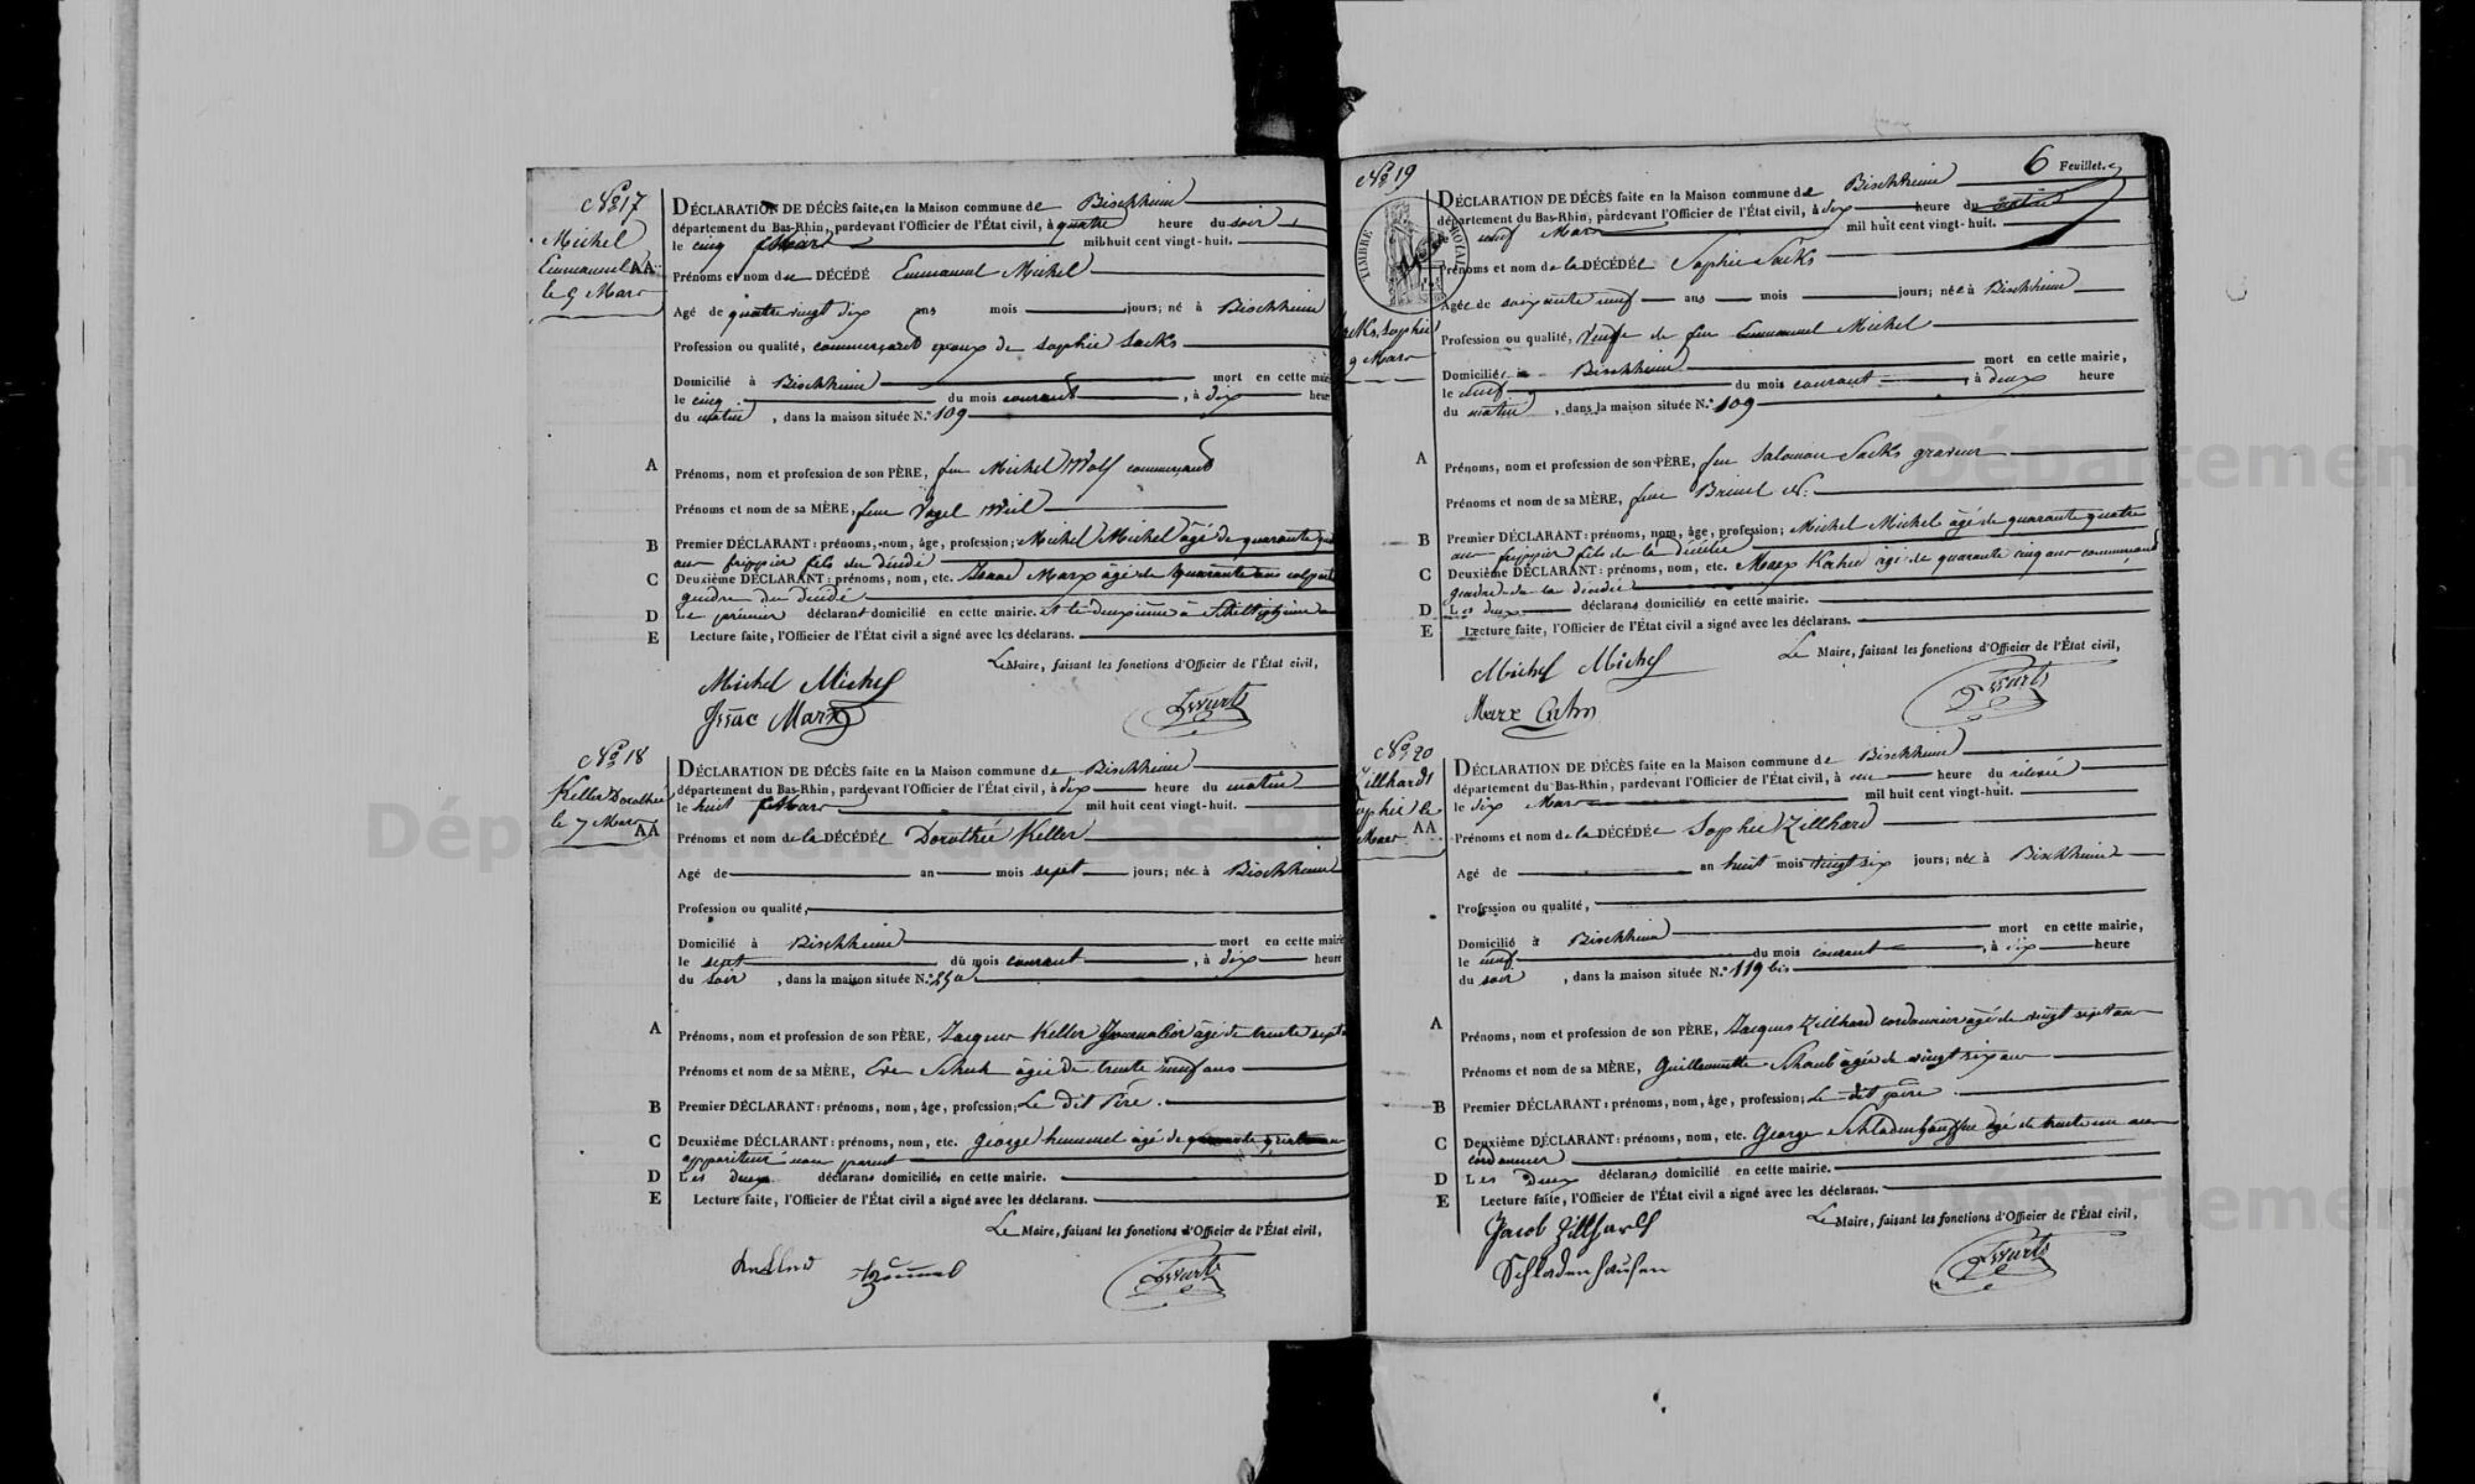 N.º 17
Michel
Emmanuel AA
le 5 Mars
DÉCLARATION DE DÉCÈS faite en la Maison commune de Bischheim
département du Bas-Rhin, pardevant l'Officier de l'État civil, à quatre heure du soir
le cinq Mars mil huit cent vingt-huit.
Prénoms et nom du DÉCÉDÉ Emmanuel Michel
Agé de quatre vingt dix ans mois jours; né à Bischheim
Profession ou qualité, commerçant époux de Sophie Sacks
Domicilié à Bischheim mort en cette
le cinq du mois courant, à dix
du matin, dans la maison située N.º 109
A Prénoms, nom et profession de son PÈRE, feu Michel Wolf commerçant
Prénoms et nom de sa MÈRE, feue Vogel Weil
B Premier DÉCLARANT: prénoms, nom, âge, profession; Michel Michel âgé de quarante
ans frippier fils du décédé
C Deuxième DÉCLARANT: prénoms, nom, etc. Isaac Marx âgé de quarante ans
gendre du décédé
D Le premier déclarant domicilié en cette mairie. et le deuxième à Schiltigheim
E Lecture faite, l'Officier de l'État civil a signé avec les déclarans.
Le Maire, faisant les fonctions d'Officier de l'État civil,
Michel Michel
Issac Marx
N.º 18
Keller Dorothée
le 7 Mars
AA
DÉCLARATION DE DÉCÈS faite en la Maison commune de Bischheim
département du Bas-Rhin, pardevant l'Officier de l'État civil, à dix heure du matin
le huit Mars mil huit cent vingt-huit.
Prénoms et nom de la DÉCÉDÉE Dorothée Keller
Agé de an mois sept jours; née à Bischheim
Profession ou qualité,
Domicilié à Bischheim mort en cette
le sept du mois courant, à dix heure
du soir, dans la maison située N.º
A Prénoms, nom et profession de son PÈRE, Jacques Keller Journalier âgé de trente sept
Prénoms et nom de sa MÈRE, Eve Schuh âgée de trente neuf ans
B Premier DÉCLARANT: prénoms, nom, âge, profession; Le dit Père.
C Deuxième DÉCLARANT: prénoms, nom, etc. George hummel âgé de
appariteur non parent
D Les deux déclarans domiciliés en cette mairie.
E Lecture faite, l'Officier de l'État civil a signé avec les déclarans.
Le Maire, faisant les fonctions d'Officier de l'État civil,
N.º 19
6 Feuillet.
TIMBRE ROYAL
Sophie
9 Mars
DÉCLARATION DE DÉCÈS faite en la Maison commune de Bischheim
département du Bas-Rhin, pardevant l'Officier de l'État civil, à dix heure du matin
neuf Mars mil huit cent vingt-huit.
Prénoms et nom de la DÉCÉDÉE Sophie Sacks
Agée de soixante neuf ans mois jours; née à Bischheim
Profession ou qualité, Veuve de feu Emmanuel Michel
Domiciliée à Bischheim mort en cette mairie,
le neuf du mois courant, à deux heure
du matin, dans la maison située N.º 109
A Prénoms, nom et profession de son PÈRE, feu Salomon Sacks graveur
Prénoms et nom de sa MÈRE, feue Brinel N.
B Premier DÉCLARANT: prénoms, nom, âge, profession; Michel Michel âgé de quarante quatre
ans frippier fils de la décédée
C Deuxième DÉCLARANT: prénoms, nom, etc. Marx Kahn âgé de quarante cinq ans commerçant
gendre de la décédée
D Les deux déclarans domiciliés en cette mairie.
E Lecture faite, l'Officier de l'État civil a signé avec les déclarans.
Le Maire, faisant les fonctions d'Officier de l'État civil,
Michel Michel
Marx Cahn
N.º 20
Zillhardt
Sophie le
Mars AA
DÉCLARATION DE DÉCÈS faite en la Maison commune de Bischheim
département du Bas-Rhin, pardevant l'Officier de l'État civil, à une heure du relevée
le dix Mars mil huit cent vingt-huit.
Prénoms et nom de la DÉCÉDÉE Sophie Zillhard
Agé de an huit mois vingt six jours; née à Bischheim
Profession ou qualité,
Domicilié à Bischheim mort en cette mairie,
le neuf du mois courant, à dix heure
du soir, dans la maison située N.º 119 bis
A Prénoms, nom et profession de son PÈRE, Jacques Zillhard cordonnier âgé de vingt sept ans
Prénoms et nom de sa MÈRE, Guillaumette Schaub âgée de vingt six ans
B Premier DÉCLARANT: prénoms, nom, âge, profession; Le dit père
C Deuxième DÉCLARANT: prénoms, nom, etc. George Schladenhaussen âgé de trente un ans
cordonnier
D Les deux déclarans domicilié en cette mairie.
E Lecture faite, l'Officier de l'État civil a signé avec les déclarans.
Le Maire, faisant les fonctions d'Officier de l'État civil,
Jacob Zillhardt
Schladenhaufen